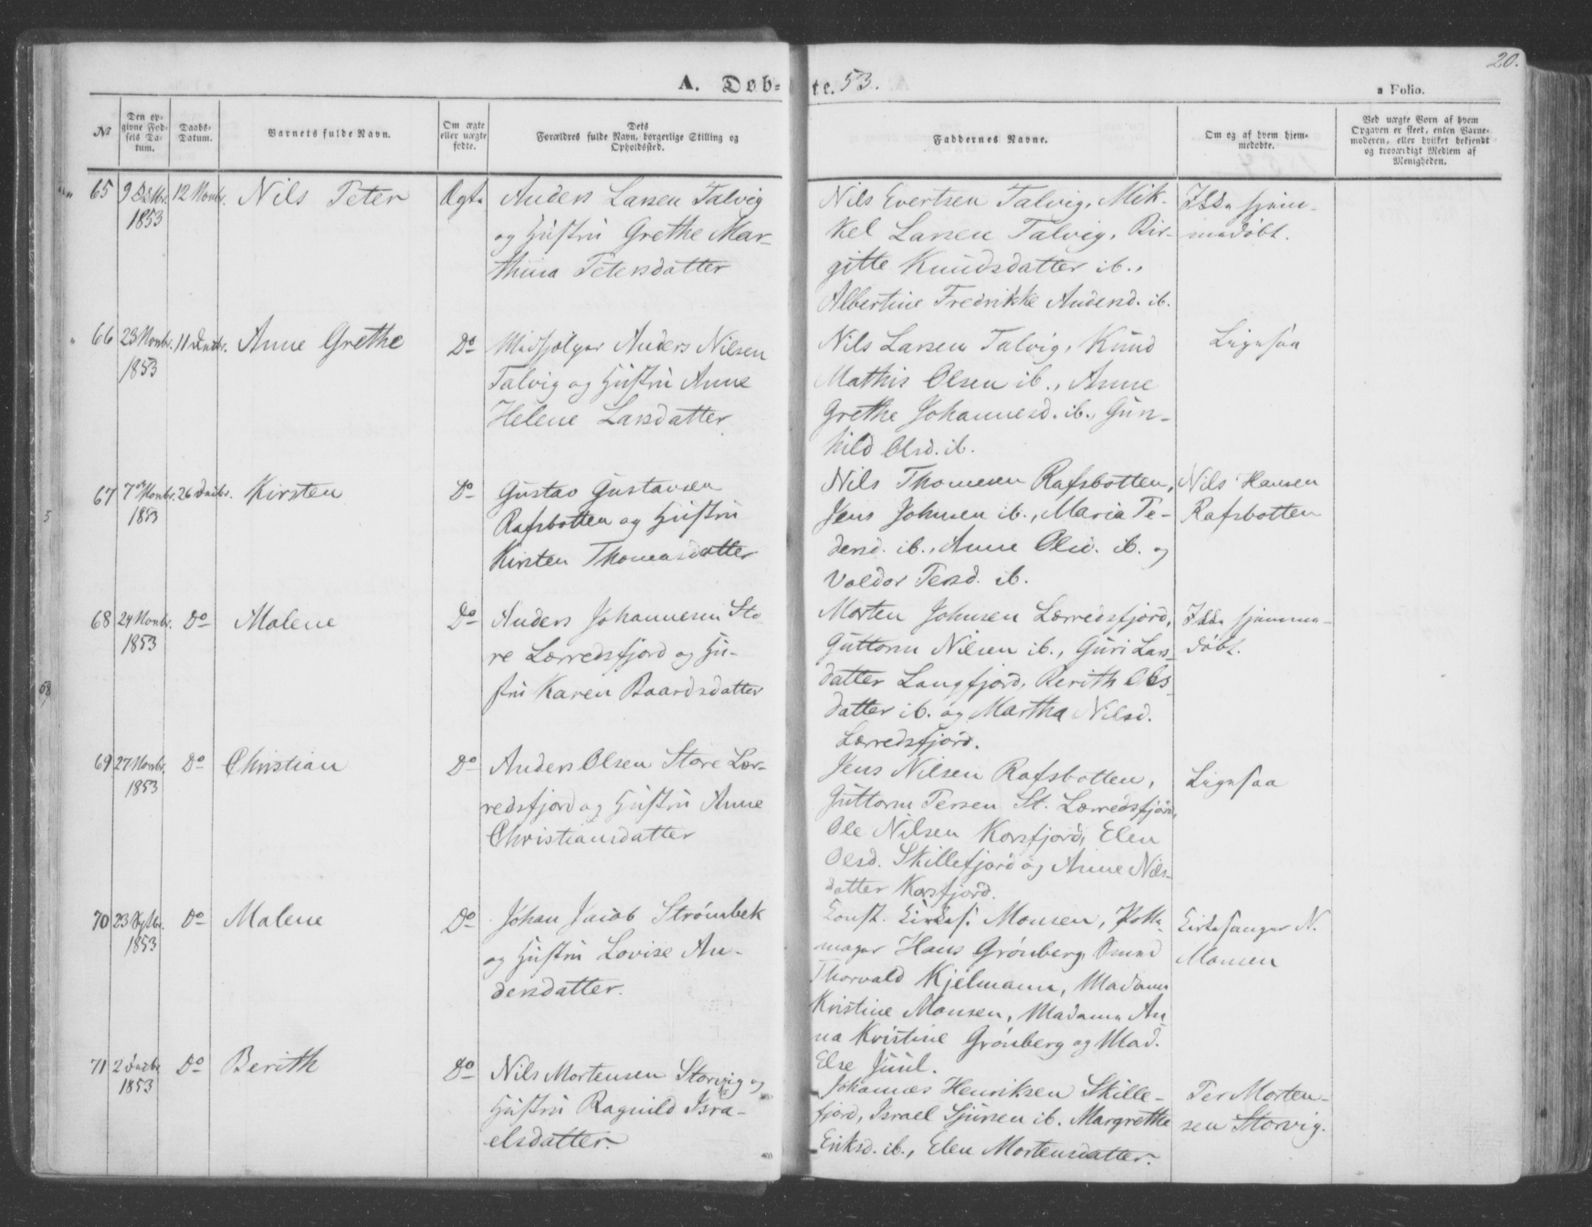 20.
A. Døb-
te. 53.
Folio.
No
Den op-
givne Fød-
sels Da-
tum.
Daabs-
Datum.
Barnets fulde Navn.
Om ægte
eller uægte
fødte.
Dets
Forældres fulde Navn, borgerlige Stilling og
Opholdssted.
Faddernes Navne.
Om og af hvem hjem-
medøbte.
Ved uægte Børn af hvem
Opgaven er skeet, enten Barne-
moderen, eller hvilket bekjendt
og troværdigt Medlem af
Menigheden.
65
1853
12 Novbr.
Nils Peter
Ægte
Anders Larsen Talvig
og Hustru Grethe Mar-
thina Petersdatter
Nils Evertsen Talvig, Mik-
kel Larsen Talvig, Bir-
gitte Knudsdatter ib.,
Albertine Fredrikke Andersd. ib.
Ikke hjem-
medøbt.
66
23 Novbr.
1853
11 Decbr.
Anne Grethe
Do
Anders Nilsen
Talvig og Hustru Anne
Helene Larsdatter
Nils Larsen Talvig, Knud
Mathis Olsen ib., Anne
Grethe Johannesd. ib., Gun-
hild Olsd. ib.
Ligesaa
67
7de Novbr.
1853
26 Decbr.
Kirsten
Do
Gustav Gustavsen
Rafsbotten og Hustru
Kirsten Thomasdatter
Nils Thomesen Rafsbotten,
Jens Johnsen ib., Maria Pe-
dersd. ib., Anne Olsd. ib. og
Valdor Persd. ib.
Nils Hansen
Rafsbotten
68
24 Novbr.
1853
Do
Malene
Do
Anders Johannesen Sto
re Lærredsfjord og Hu-
stru Karen Baardsdatter
Morten Johnsen Lærredsfjord,
Guttorm Nilsen ib., Guri Lars-
datter Langfjord, Berith Ols-
datter ib. og Martha Nilsd.
Lærredsfjord.
Ikke hjemme-
døbt.
69
27 Novbr.
1853
Do
Christian
Do
Anders Olsen Store Lær-
redsfjord og Hustru Anne
Christiansdatter
Jens Nilsen Rafsbotten,
Guttorm Persen St. Lærredsfjord,
Ole Nilsen Korsfjord, Elen
Olsd. Skillefjord og Anne Nils-
datter Korsfjord.
Ligesaa
70
23 Septbr.
1853
Do
Malene
Do
Johan Jacob Strømbek
og Hustru Lovise An-
dersdatter.
Const. Kirkes. Monsen, Potte-
mager Hans Grønberg,
Thorvald Kjelmann, Madame
Kristine Monsen, Madame An
na Kristine Grønberg og Mad.
Else Juul.
Kirkesanger N.
Monsen
71
2 Decbr.
1853
Do
Berith
Do
Nils Mortensen Storvig og
Hustru Ragnild Isra-
elsdatter.
Johannes Henriksen Skille-
fjord, Israel Sjursen ib. Margrethe
Eriksd. ib., Elen Mortensdatter.
Per Morten-
sen Storvig.